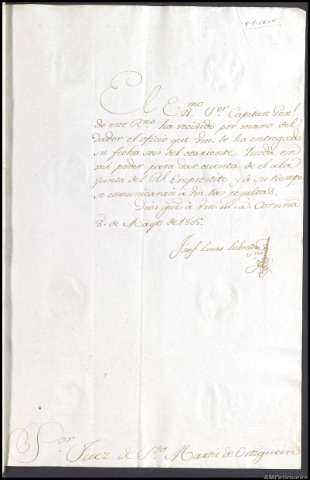 8-5-1805
El Exmo Sor. Capitan Genl.
de este Rno ha recivido por mano del
dador el oficio que Vm. le ha entregado
su fecha seis del corriente. Queda en
mi poder para dar cuenta de el a la
Junta del Rl Emprestito y a su tiempo
se comunicarán a Vm las resultas.
Dios gue. a Vm ms. as. Coruña
8 de Mayo de 1805.
Josef
Sor. Juez de Sta. Marta de Ortigueira